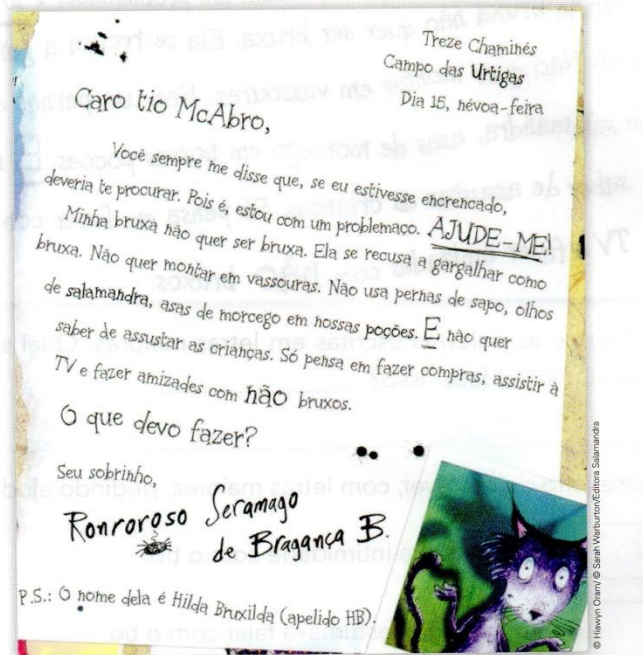 Treze Chaminés
Campo das Urtigas
Dia 15, névoa-feira
Caro tio McAbro,
Você sempre me disse que, se eu estivesse encrencado,
deveria te procurar. Pois é, estou com um problemaço. AJUDE-ME!
Minha bruxa não quer ser bruxa. Ela se recusa a gargalhar como
bruxa. Não quer montar em vassouras. Não usa pernas de sapo, olhos
de salamandra, asas de morcego em nossas poções. E não quer
saber de assustar as crianças. Só pensa em fazer compras, assistir à
TV e fazer amizades com não bruxos.
O que devo fazer?
Seu sobrinho,
Ronroroso Seramago
de Bragança B.
P.S.: O nome dela é Hilda Bruxilda (apelido HB).
© Hiawyn Oram/ © Sarah Warburton/Editora Salamandra